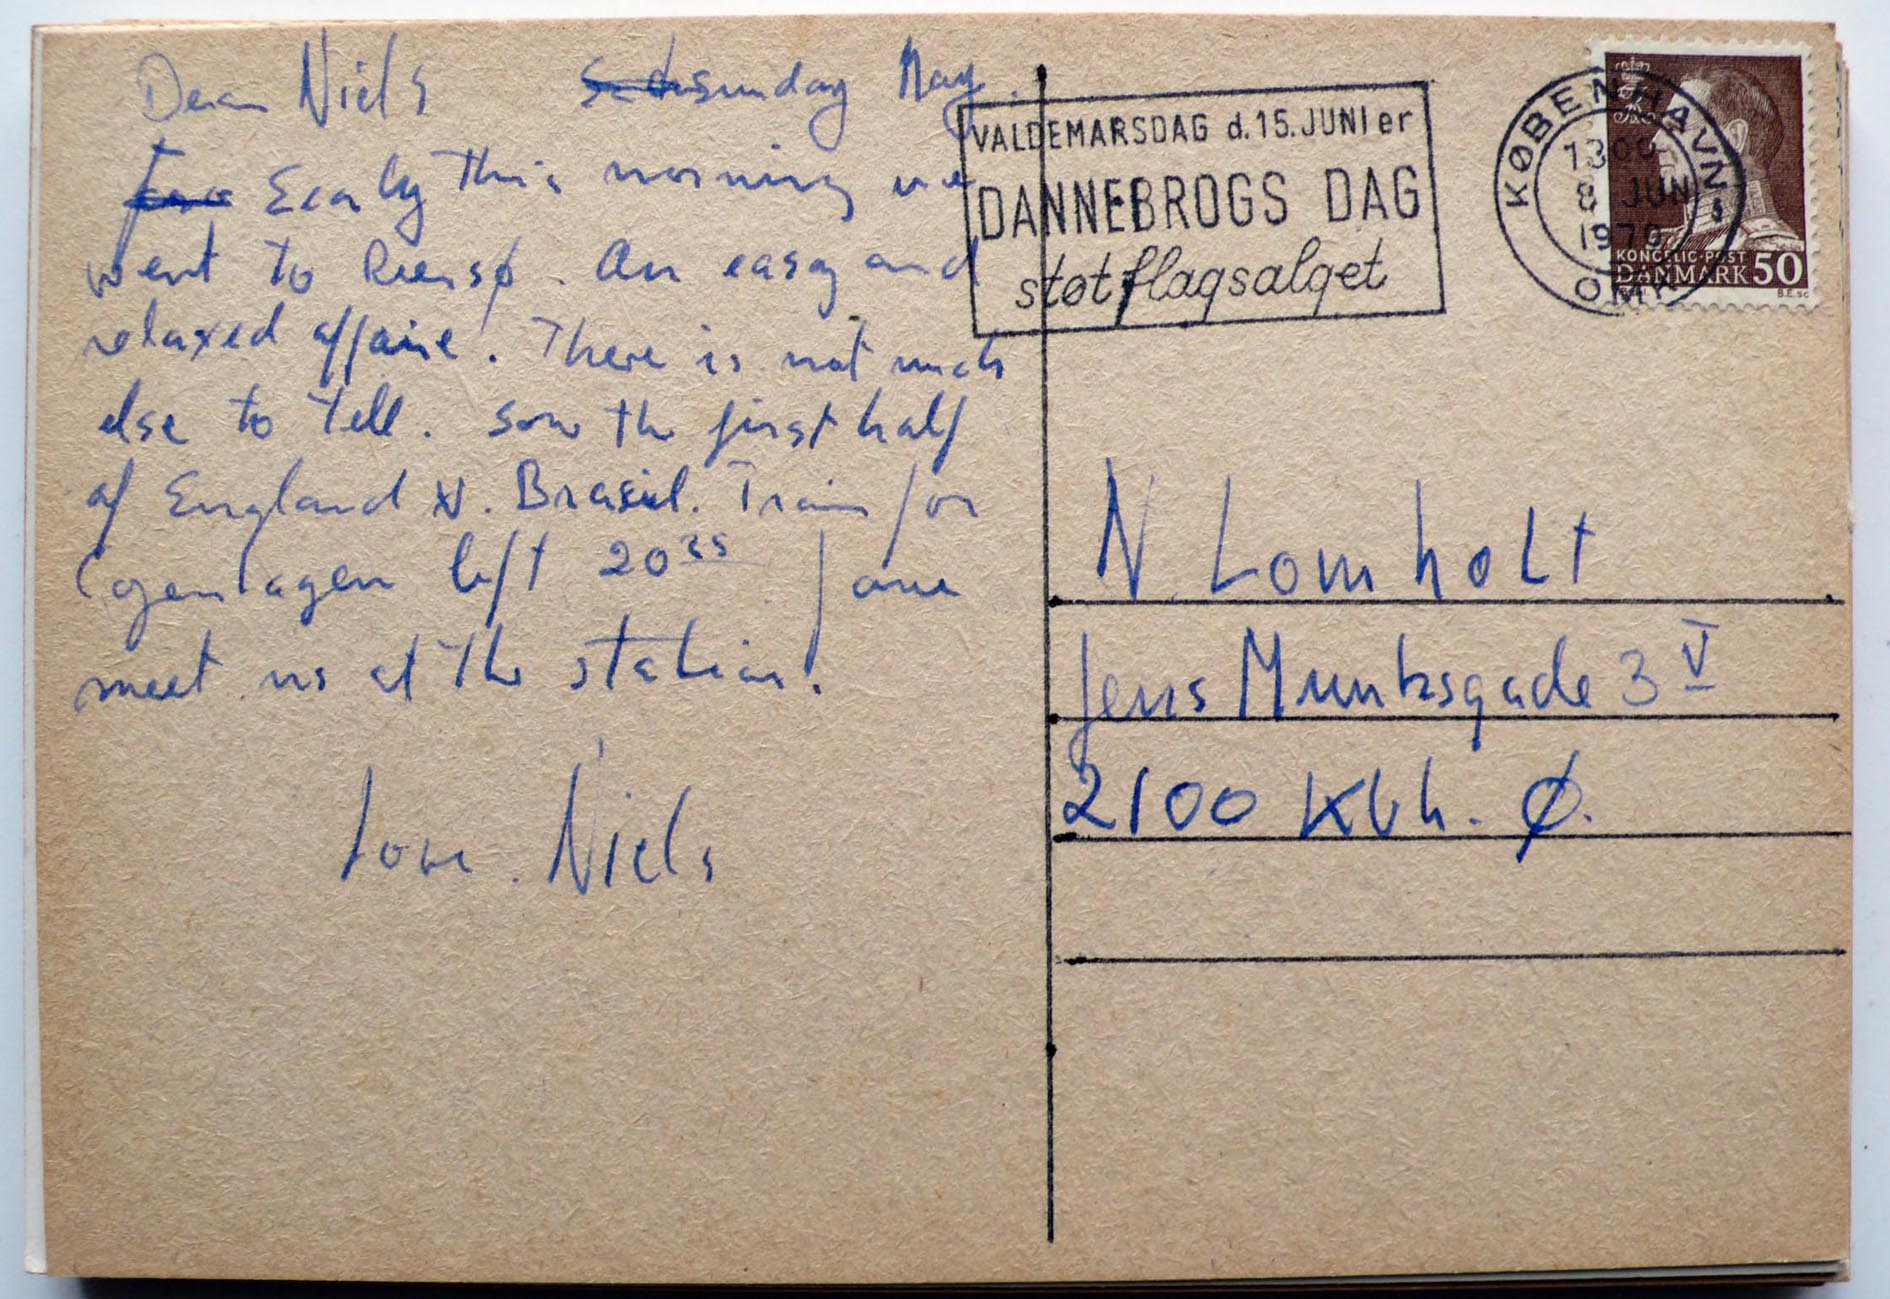 Dear Niels sunday May.
Early this morning we
went to Rensø. An easy and
relaxed affaire. There is not much
else to tell. Saw the first half
of England v. Brasil. Train for
Copenhagen left 20 35 Jane
meet us at the station!
Love. Niels
VALDEMARSDAG d. 15. JUNI er
DANNEBROGS DAG
støt flagsalget
KØBENHAVN
1300
8 JUN
1970
OMK
KONGELIG POST
DANMARK 50
N Lomholt
Jens Munksgade 3 V
2100 Kbh. Ø.